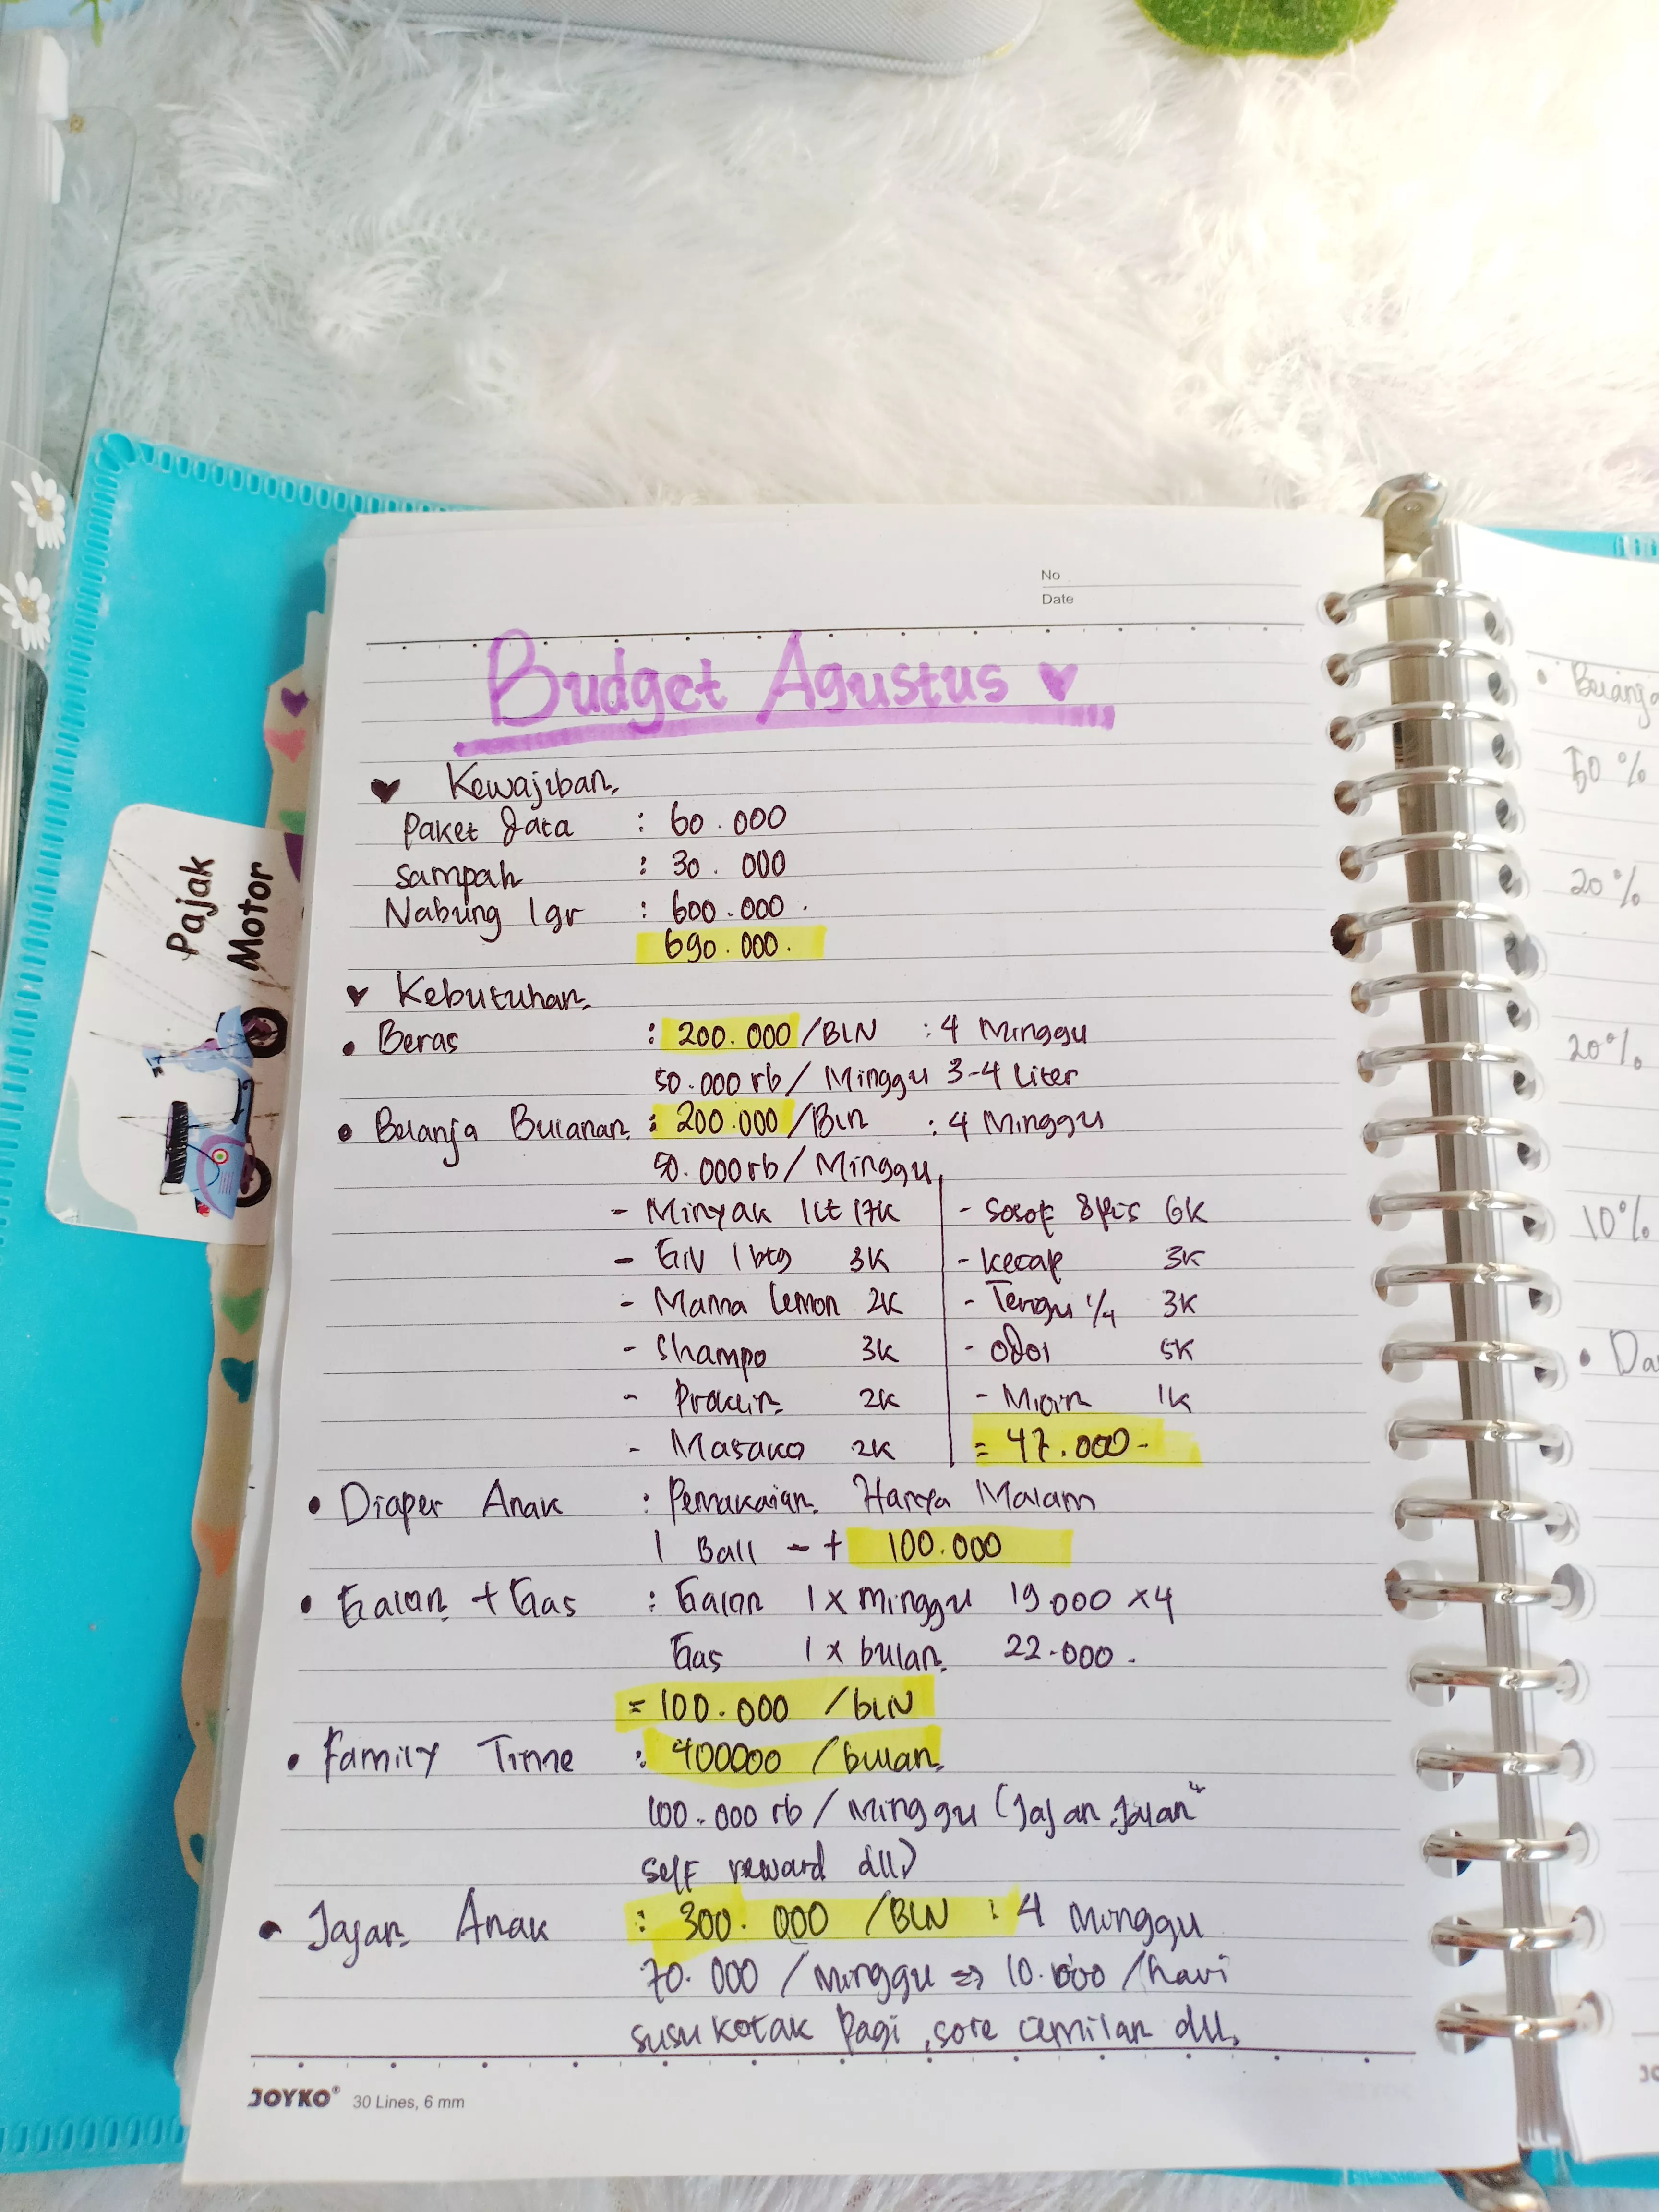 No
Date
Budget Agustus
Kewajiban
Paket Data : 60.000
Sampah : 30.000
Nabung 1gr : 600.000.
690.000.
Kebutuhan
• Beras : 200.000/BLN : 4 Minggu
50.000 rb/Minggu 3-4 Liter
• Belanja Bulanan : 200.000/BLN : 4 Minggu
50.000 rb/Minggu
- Minyak 1Lt 17K
- GIV 1 btg 3K
- Mama Lemon 2K
- Shampo 3K
- Proklin 2K
- Masako 2K
- Sosof 8Pis 6K
- Kecap 3K
- Terigu 1/4 3K
- Odol 5K
- Micin 1K
= 47.000-
• Diaper Anak : Pemakaian Hanya Malam
1 Ball -+ 100.000
• Galon + Gas : Galon 1x minggu 19.000 x4
Gas 1x bulan 22.000.
= 100.000 /bLN
• Family Time : 400000 /bulan
100.000 rb/Minggu (Jajan, Jalan"
self reward dll)
• Jajan Anak : 300.000 /BLN : 4 Minggu
70.000 /Minggu => 10.000 /hari
susu kotak Pagi, sore cemilan dll.
JOYKO® 30 Lines, 6 mm
Pajak
Motor
• Belanja
50%
20%
20%
10%